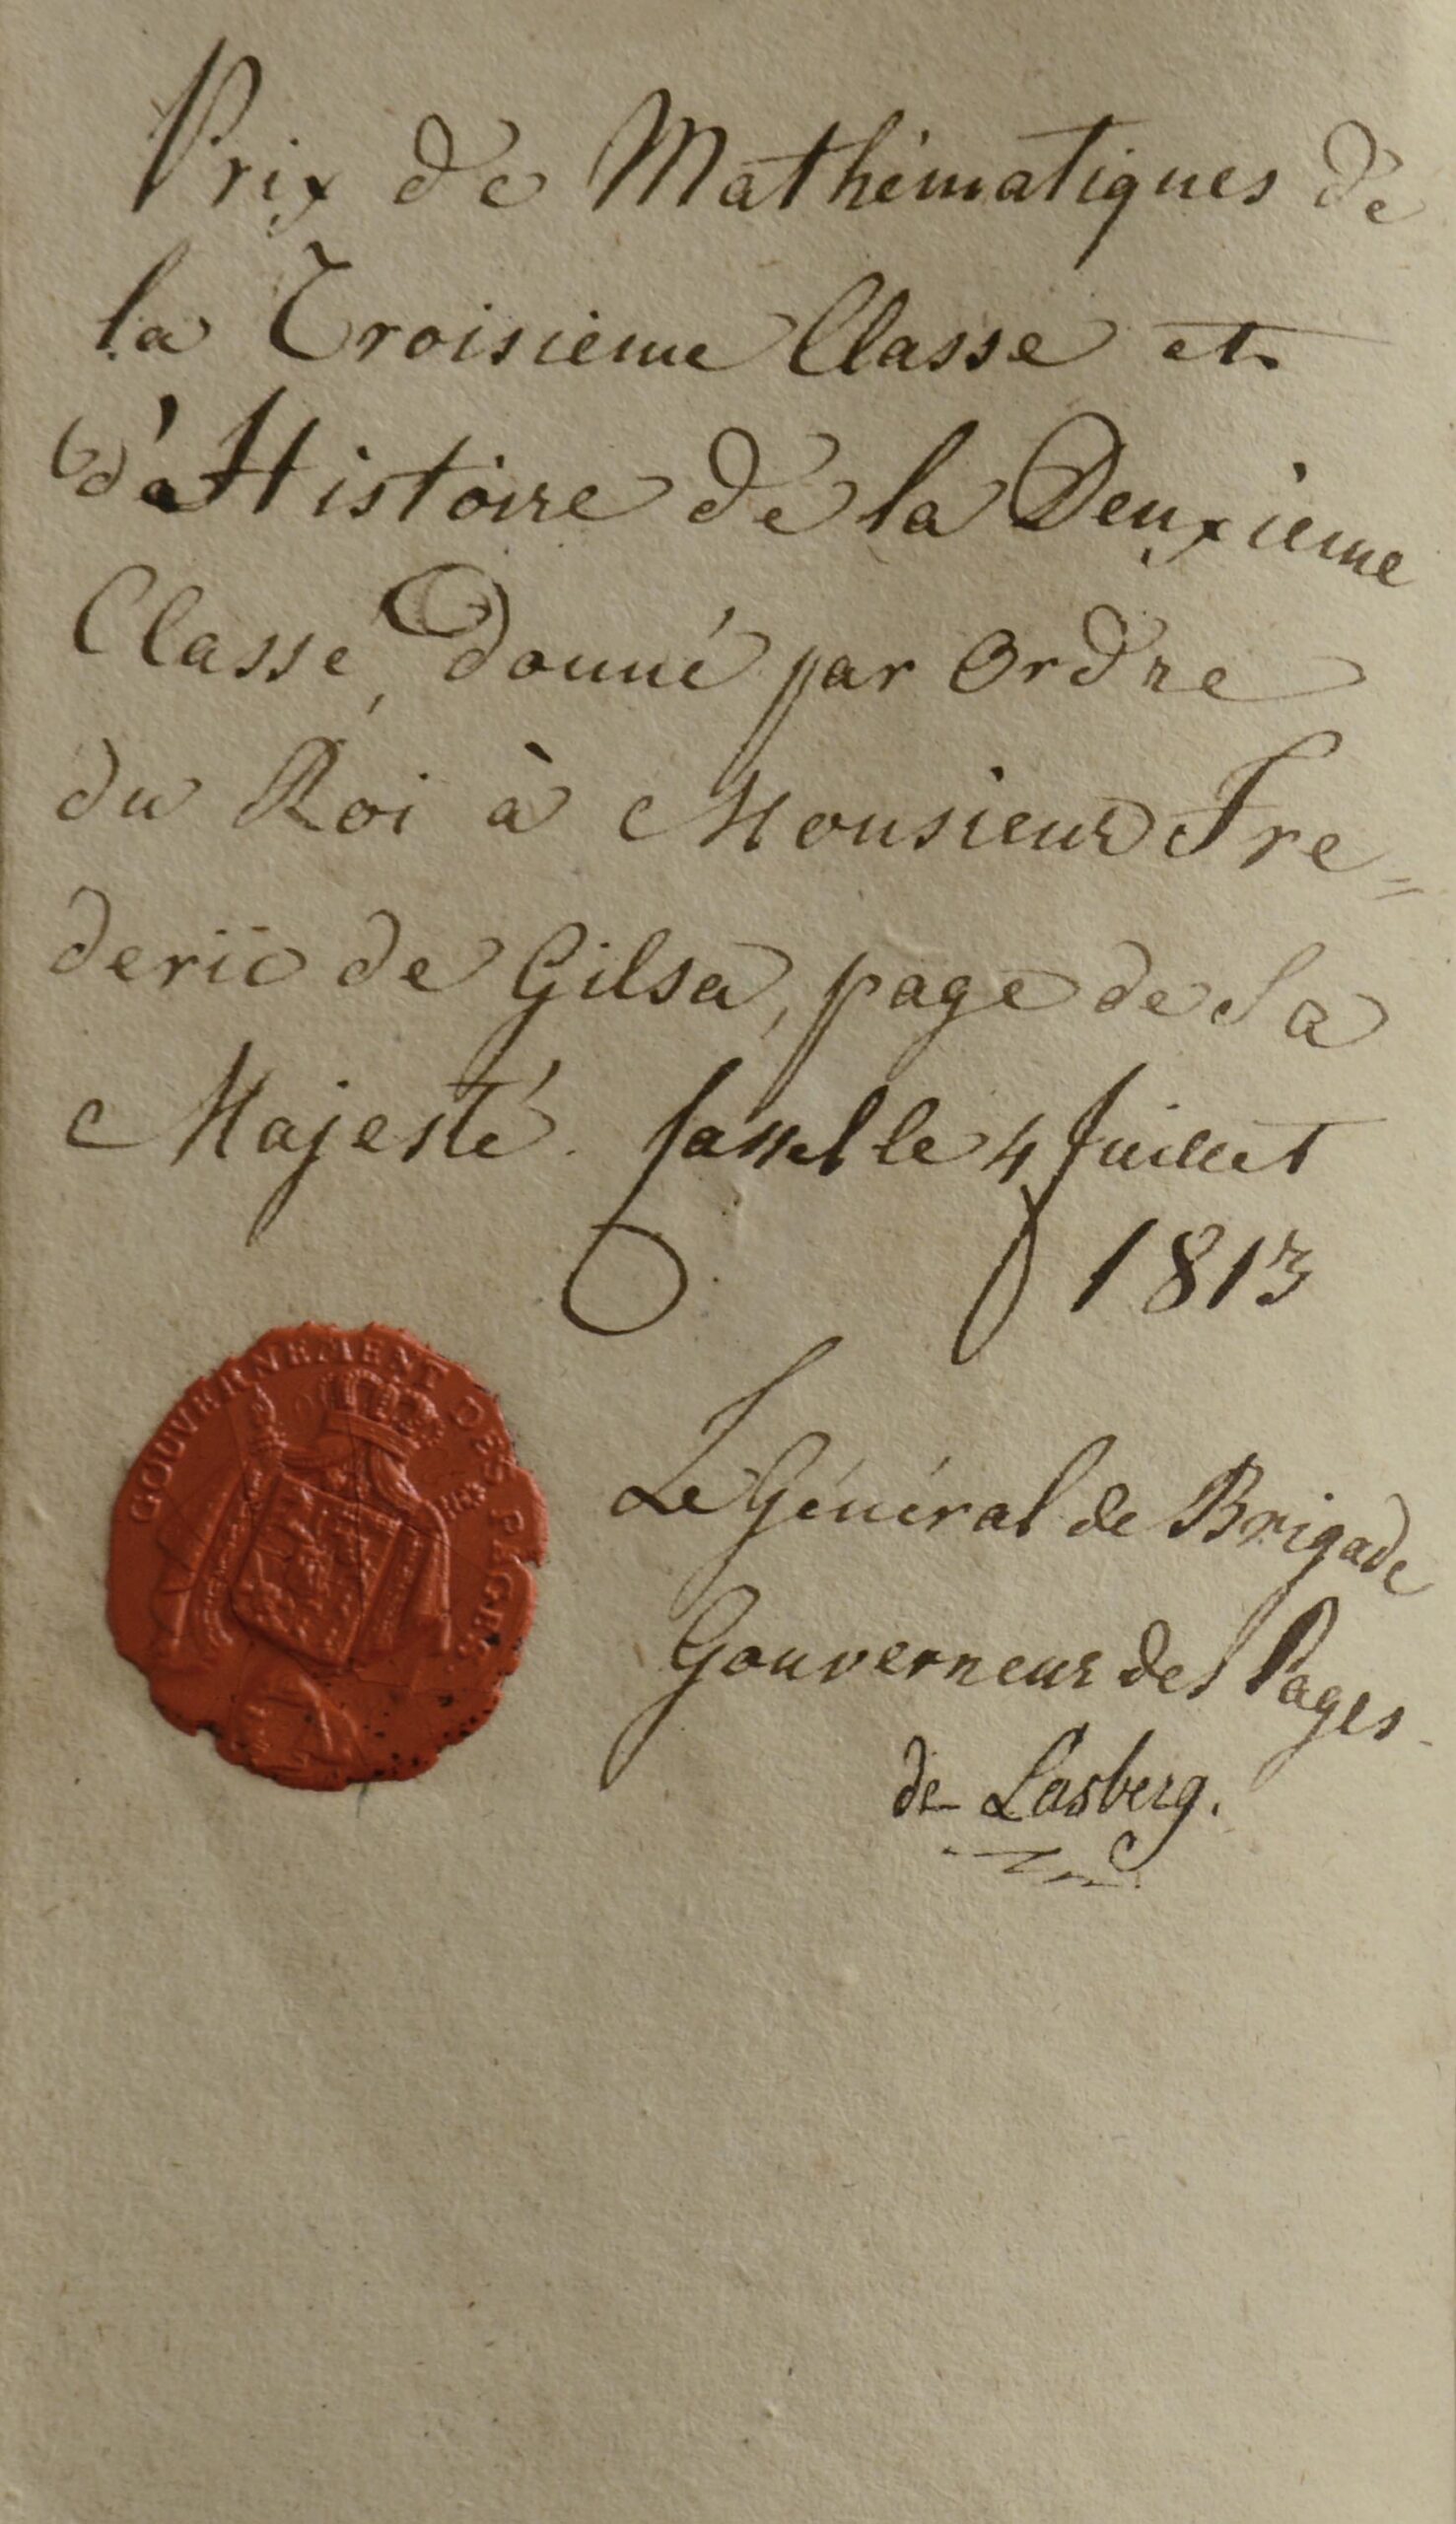 Prix de Mathématiques de
la Troisieme Classe et
d'Histoire de la Deuxieme
Classe, donné par Ordre
du Roi à Monsieur Fre=
deric de Gilsa, page de Sa
Majesté. Cassel le 4 Juillet
1813
GOUVERNEMENT DES PAGES
Le Général de Brigade
Gouverneur des Pages
de Lasberg.